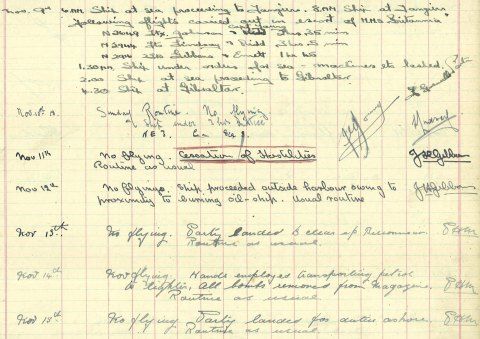 Nov. 9th 6 AM Ship at sea proceeding to Tangiers. 8 AM Ship at Tangiers
Following flights carried out in escort of HMS Britannia"
N 2048 Johnson & 3 hrs 35 min
Lindsay & Kidd 3 hrs 5 min
Gibbons & Emett 1 hr 45
1.30 PM Ship under orders for sea - machines etc lashed.
2.00 Ship at sea proceeding to Gibraltar
4.30 Ship at Gibraltar.
Nov. 10th Sunday Routine. No flying
Ship under 3 hrs notice
Nov 11th No flying. Cessation of Hostilities
Routine as usual
Nov 12th No flying. Ship proceeded outside harbour owing to
proximity to burning oil-ship. Usual routine
Nov 13th. No flying. Party landed to clear up
Routine as usual.
Nov 14th No flying. Hands employed transporting petrol
to All bombs removed from magazine.
Routine as usual
Nov 15th No flying Party landed for duties ashore.
Routine as usual.